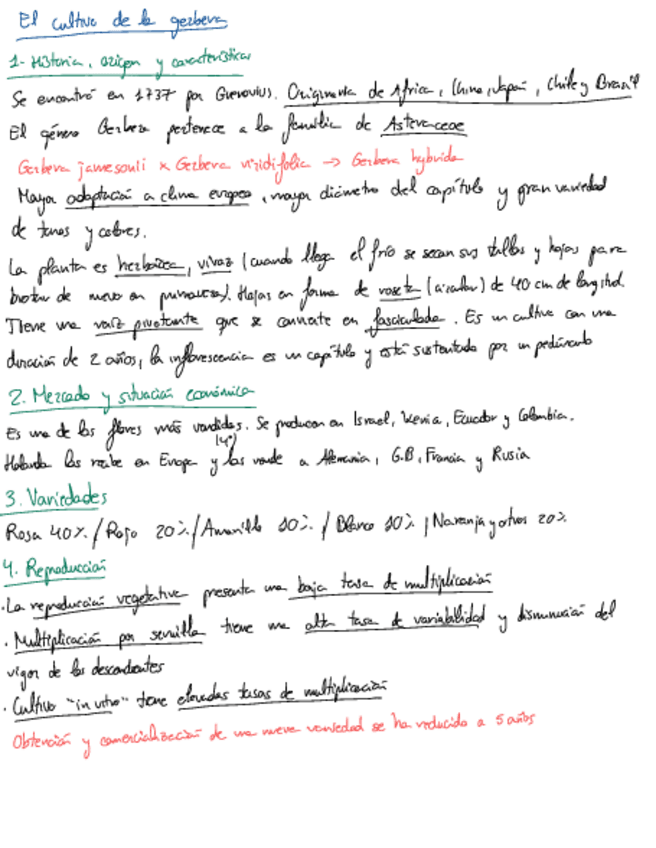 El cultivo de la gerbera
1- Historia, origen y características
Se encontró en 1737 por Gronovius. Originaria de Africa, China, Japón, Chile y Brasil
El género Gerbera pertenece a la familia de Asteraceae
Gerbera jamesonii x Gerbera viridifolia → Gerbera hybrida
Mayor adaptación a clima europeo, mayor diámetro del capítulo y gran variedad
de tonos y colores.
La planta es herbácea, vivaz (cuando llega el frío se secan sus tallos y hojas para
brotar de nuevo en primavera). Hojas en forma de roseta (circular) de 40 cm de longitud.
Tiene una raíz pivotante que se convierte en fasciculada. Es un cultivo con una
duración de 2 años, la inflorescencia es un capítulo y está sustentada por un pedúnculo
2. Mercado y situación económica
Es una de las flores más vendidas. Se producen en Israel, Kenia, Ecuador y Colombia.
(4º)
Holanda las recibe en Europa y las vende a Alemania, G.B, Francia y Rusia
3. Variedades
Rosa 40% / Rojo 20% / Amarillo 10% / Blanco 10% / Naranja y otros 20%
4. Reproducción
· La reproducción vegetativa presenta una baja tasa de multiplicación
· Multiplicación por semilla tiene una alta tasa de variabilidad y disminución del
vigor de los descendientes
· Cultivo "in vitro" tiene elevadas tasas de multiplicación
Obtención y comercialización de una nueva variedad se ha reducido a 5 años